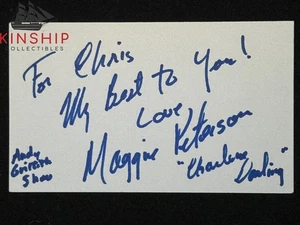 KINSHIP
COLLECTIBLES
For Chris
My Best to You!
Love
Maggie Peterson
"Charlene
Darling"
Andy
Griffith
Show